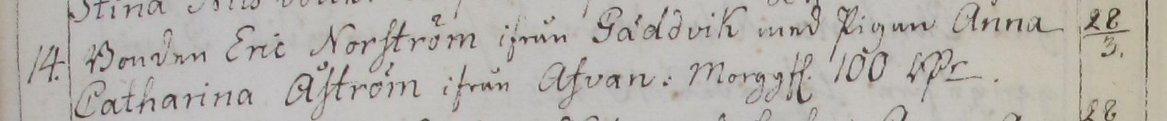 Stina Nils
14. Bonden Eric Norström ifrån Gäddvik med Pigan Anna 28/3.
Catharina Åström ifrån Afvan. Morggfl. 100 Rdr.
28